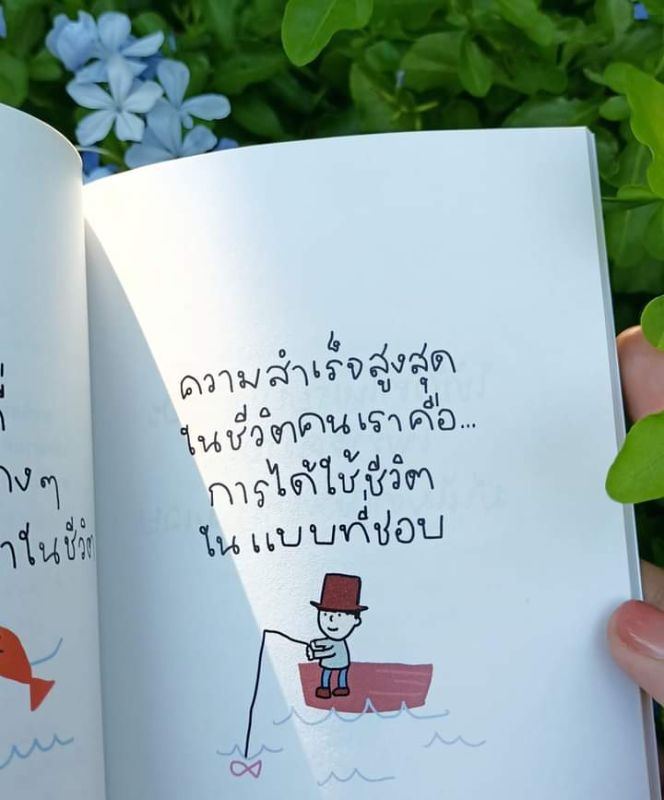 ที่
างๆ
าในชีวิต
ความสำเร็จสูงสุด
ในชีวิตคนเราคือ...
การได้ใช้ชีวิต
ในแบบที่ชอบ